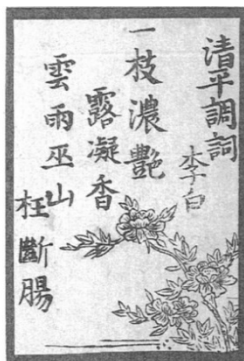 清平調詞
李白
一枝濃艷
露凝香
雲雨巫山
枉斷腸